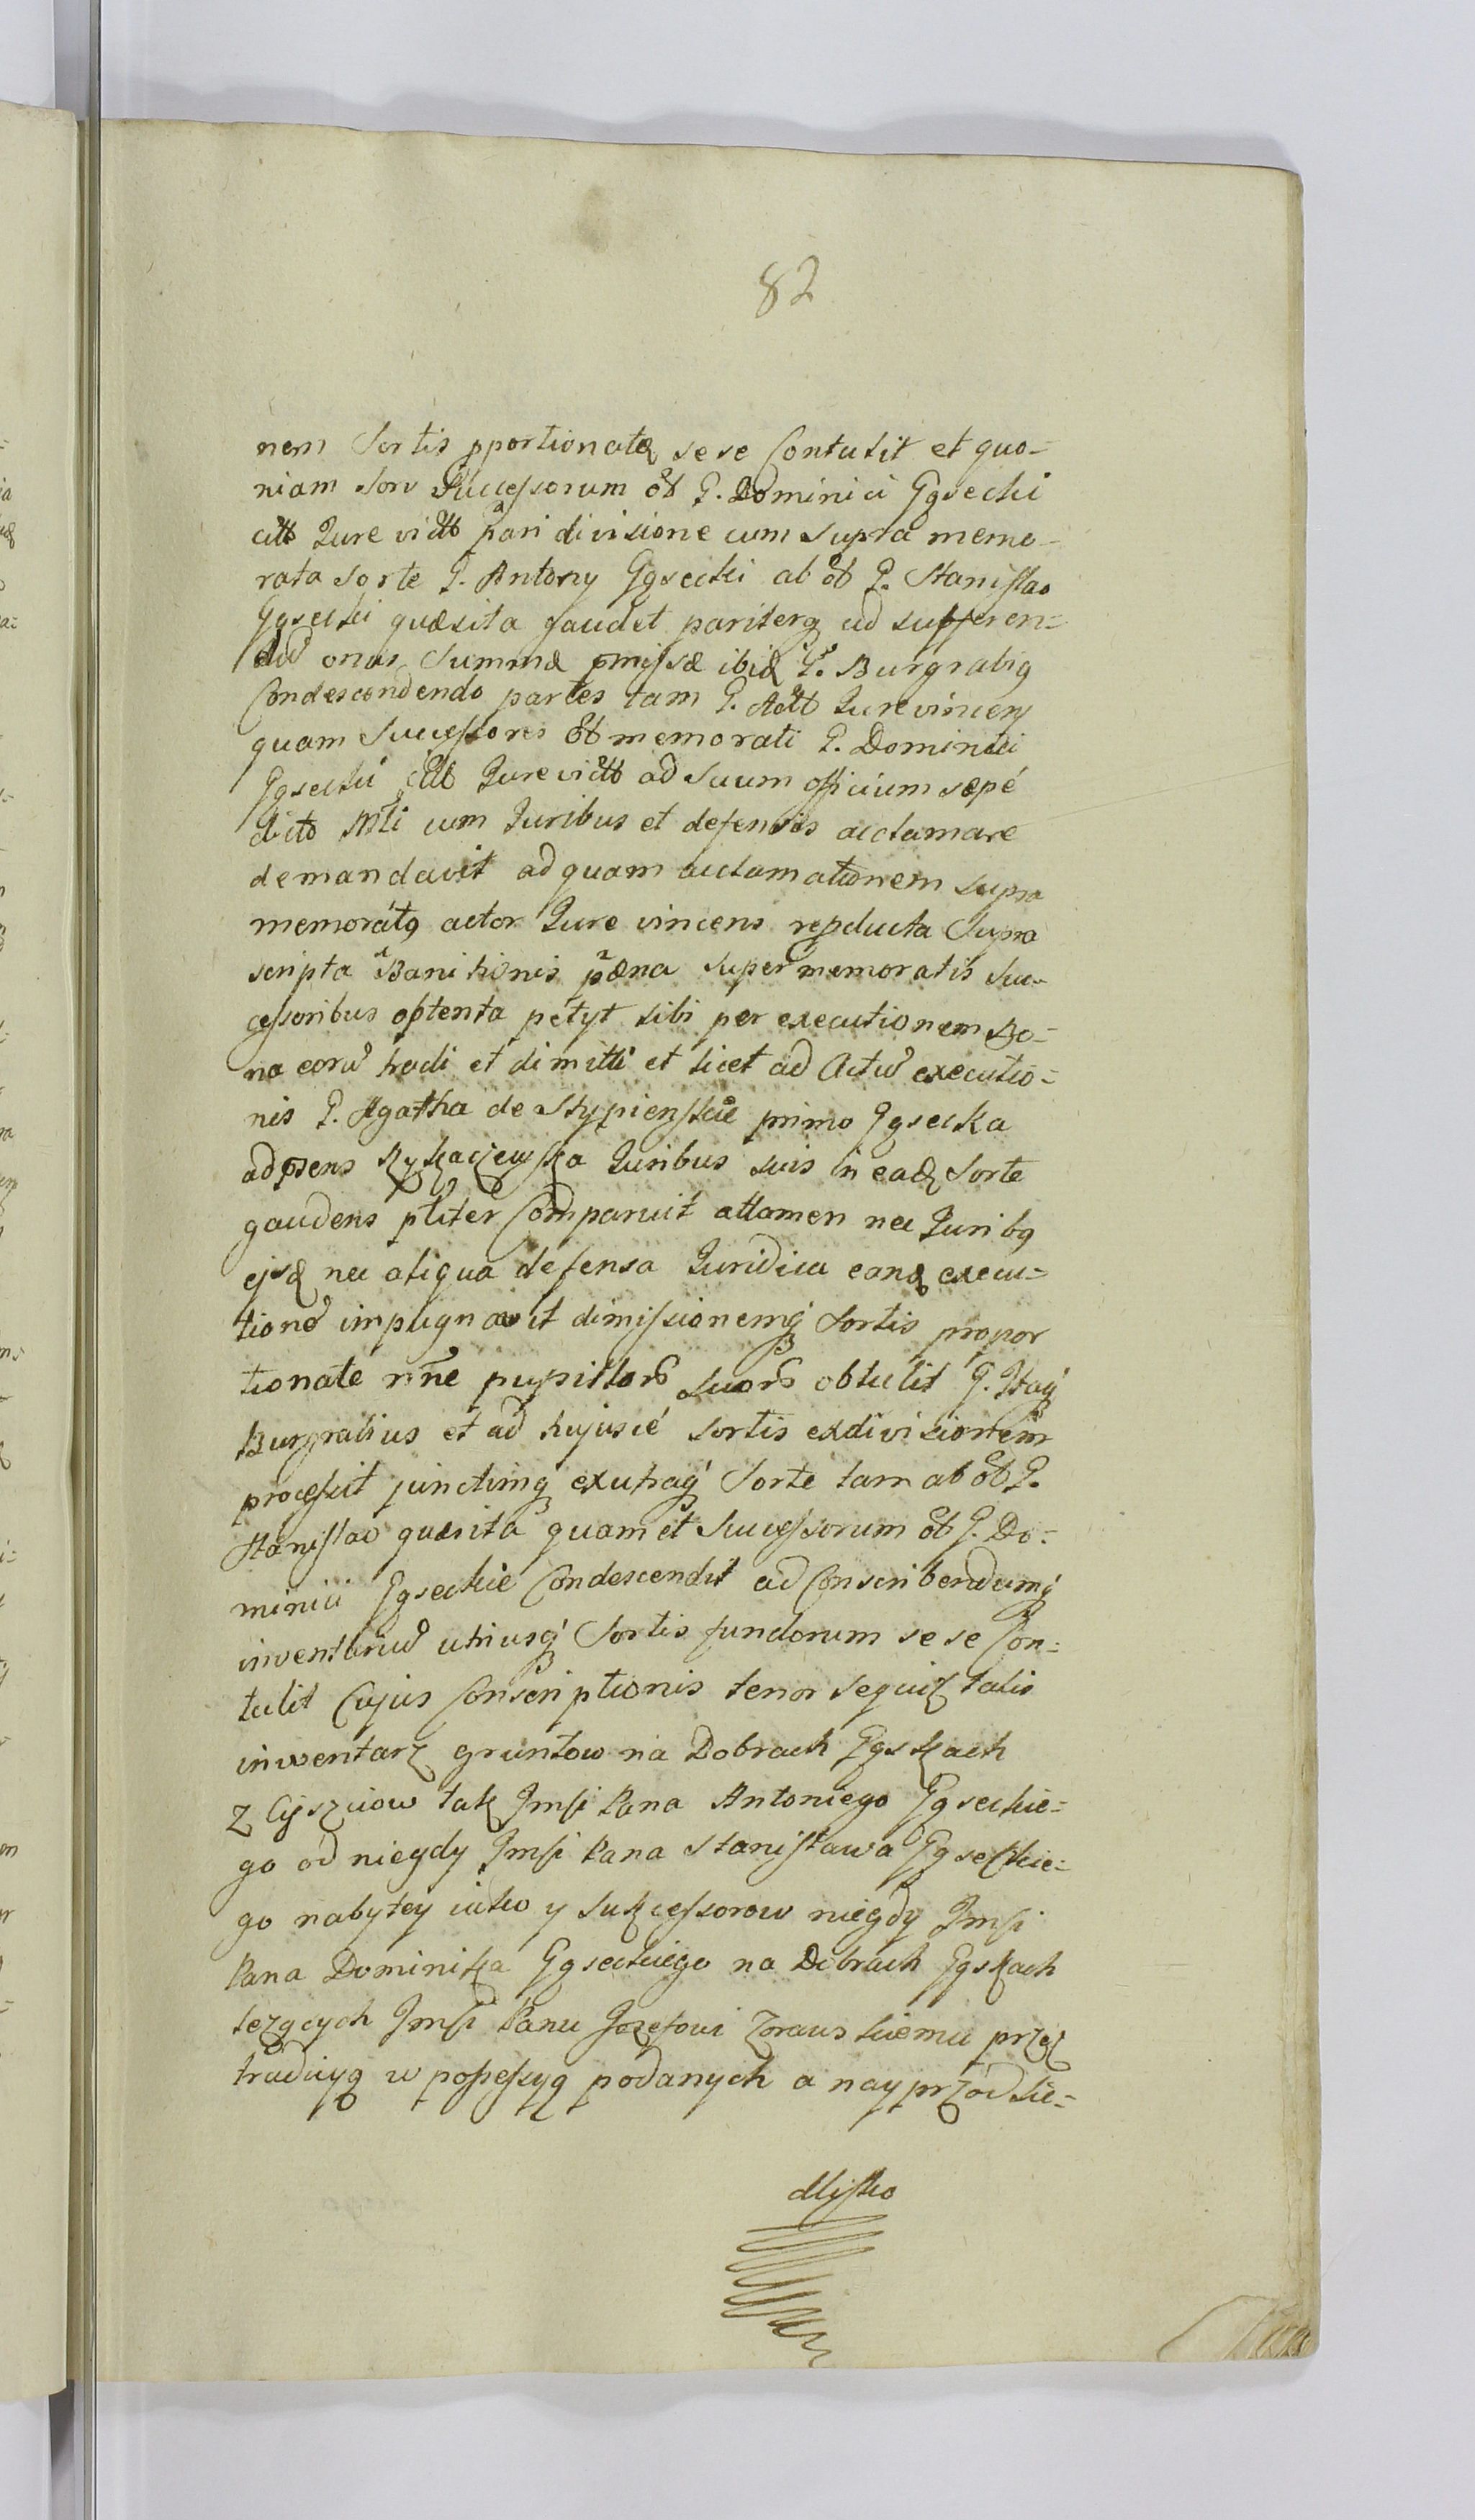 82
nem Sortis pportionatæ sese Contulit et quo=
niam Sors Successorum ob G. Dominici Ggsecki
citt Jure victt pari divisione cum supra memo-
rata sorte G. Antony Ggsecki ab ob G. Stanislao
Ggsecki quæsita gaudet pariterq ad sufferen=
dũ onus Summæ pmissæ ibid G. Burgrabiq
Condescendendo partes tam G. Actt Jurevincens
quam Successores Ob memorati G. Dominici
Ggsecki citt Jurevictt ad Suum officium sæpé
dicto Mti cum Juribus et defensis acclamare
demandavit ad quam acclamationem supra
memoratq actor Jure vincens repducta Supra
scripta Banitionis pæna super memoratis Suc-
cessoribus optenta petyt sibi per executionem Bo-
na eorũ tradi et dimitti et licet ad Actũ executio=
nis G. Agatha de Stypienskie primo Ggsecka
ad psens Rykaczewska Juribus suis in ead Sorte
gaudens pliter Comparuit attamen nec Juribq
ejsd nec aliqua defensa Juridica eand execu=
tionẽ impugnavit dimissionemq Sortis propor
tionate nne pupillorũ Suorũ obtulit G. Itaq
Burgrabius et ad hujusce sortis exdivisionem
processit junctimq exutraq Sorte tam ab ob G.
Stanislao quæsita quam et Successorum ob G. Do-
minici Ggseckie Condescendit ad Conscribendumq
inventariũ utriusq Sortis fundorum sese Con=
tulit Cujus Conscriptionis tenor sequitz talis
inwentarz gruntow na Dobrach Ggskach
z Cżęsciow tak Jmsi Pana Antoniego Ggseckie=
go od niegdy Jmsi Pana Stanisława Ggseckie=
go nabytey iako y Sukcessorow niegdy Jmsi
Pana Dominika Ggseckiego na Dobrach Ggskach
leżących Jmsi Panu Jozefowi Zorawskiemu przez
tradycyą w possessyą podanych a nayprzod Sie=
dlisko